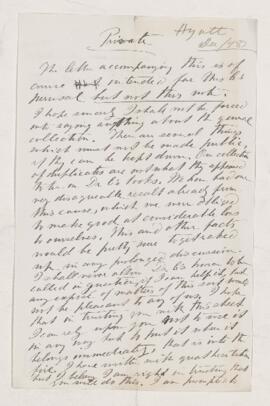 Private
Hyatt
Dec/
The letter accompanying this is of
course intended for this
perusal but not this note.
I hope sincerely I shall not be forced
into saying anything about the general
collection. There are several things
which must not be made public,
if they can be kept down. Our collection
of duplicates are not what they appeared
to be on books. We have had one
very disagreeable result already from
this cause, which we were obliged
to make good at considerable loss
to ourselves. This and other facts
would be pretty sure to get abroad
up in any prolonged discussion.
I shall never allow honor to be
called in question if I can help it, but
any exposé of matters of this sort would
not be pleasant to any of us. I hope
that in trusting you with this secret
I can rely upon you not to use it
in any way but to put it where it
belongs immediately, that is into the
fire. I have written with great hesitation
but I believe I am right in trusting that
you will do this. I am